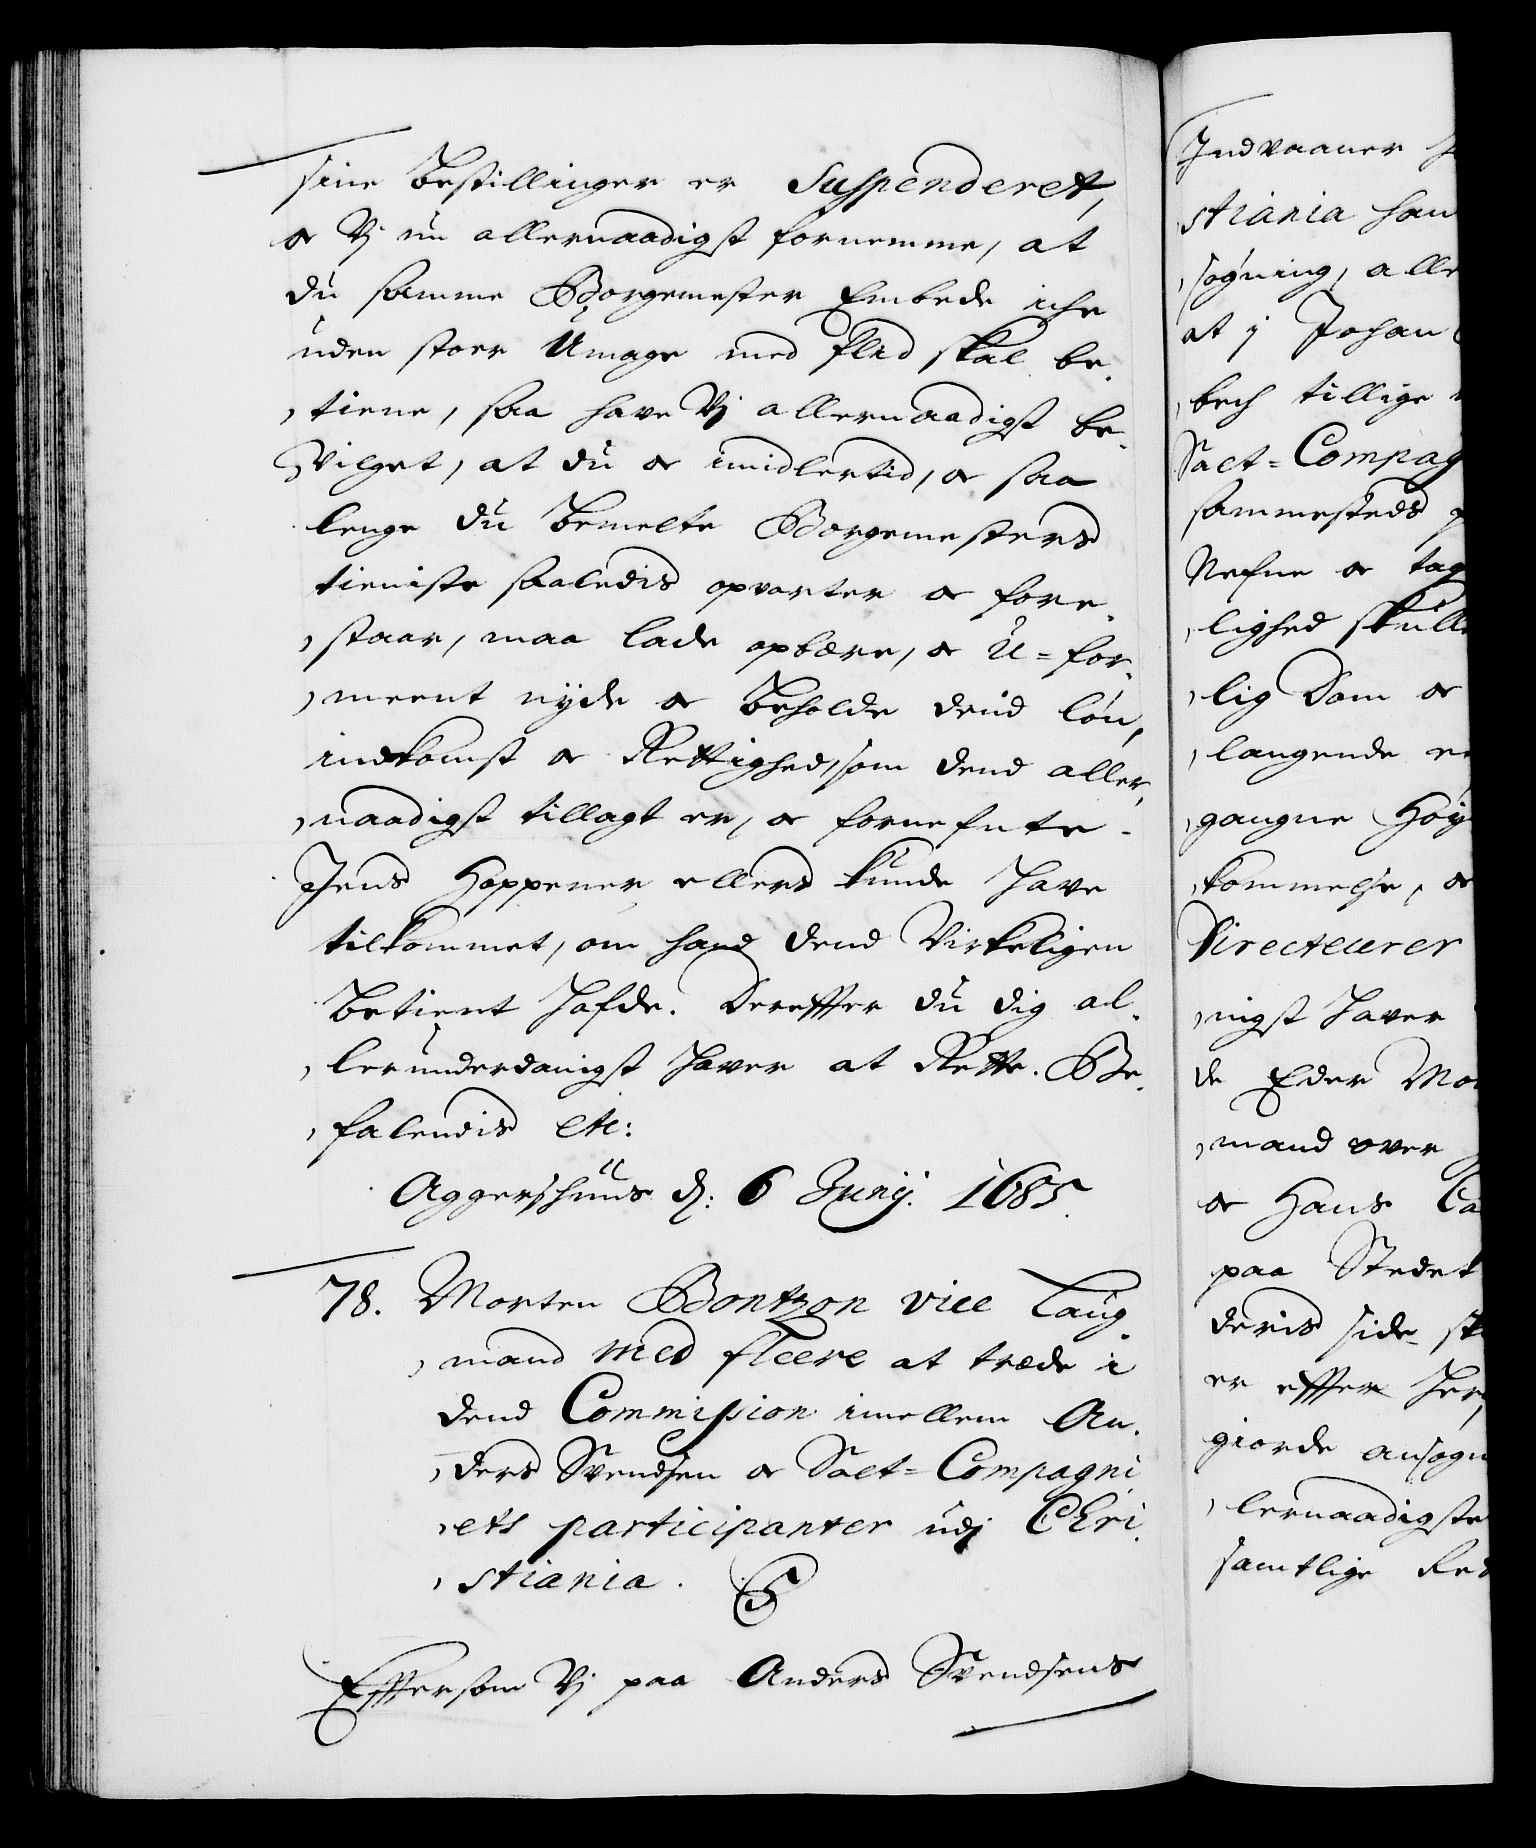 sine Bestillinger er Suspenderet,
oc Vj nu allernaadigst fornemme, at
du samme Borgemester Embede iche
uden stoer Umage med flid skal be-
tiene, saa have Vj allernaadigst be-
vilget, at du oc imidlertid, oc saa
lenge du bemelte Borgemesters
tieniste saaledis opvarter oc fore-
staar, maa lade opbære, oc U=for-
ment nyde oc beholde dend løn,
indkomst oc Rettighed, som dend aller-
naadigst tillagt er, oc fornefnte
Jens Hoppener ellers kunde have
tilkommet, om hand dend Virkeligen
betient hafde. Derefter du dig al-
lerunderdanigst haver at Rette. Be-
falendis etc:
Aggershuus d: 6 Junij. 1685.
78. Morten Bontzon vice Laug-
mand med fleere at træde i
dend Commission imellem An-
ders Svendsen oc Salt=Compagni
ets participanter udj Chri-
stiania.
Eftersom Vj paa Anders Svendsens
Indvaaner
stiania han
søgning, alle
at j Johan
bech tillige
Salt=Compag
sammesteds
Nefne oc tag
lighed skulle
lig Dom oc
langende
gangne Høy
kommelse, oc
Directeurer
nigst haver
de Eder Mo
mand over
oc Hans Ca
paa Stedet
deris side
er efter her
giorde ansøgn
lernaadigste
samtlige